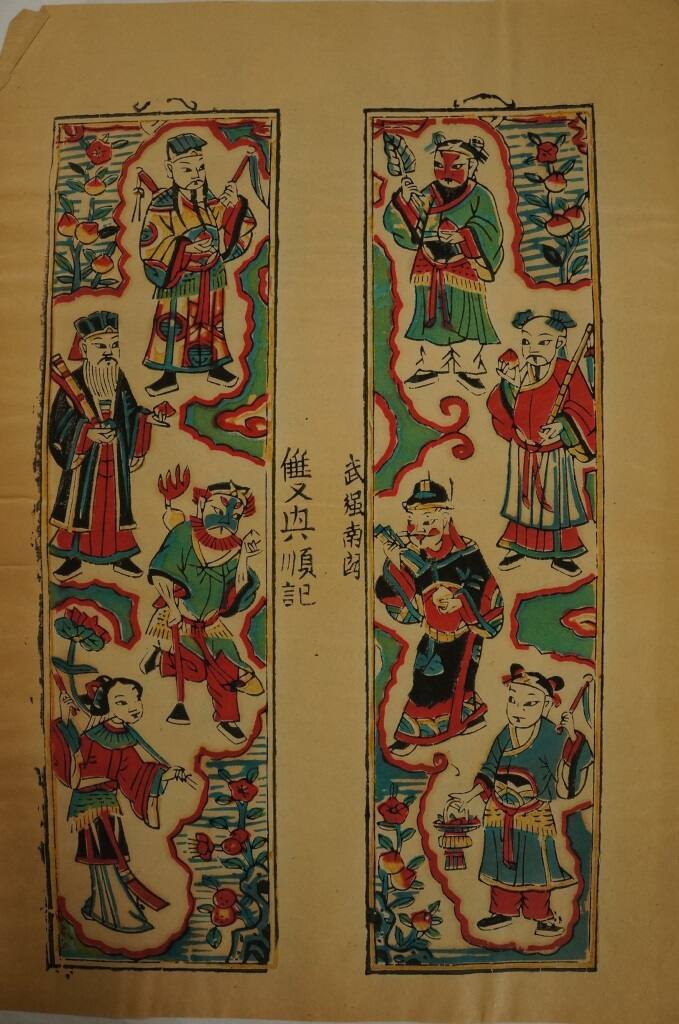 武强南関
雙興順記